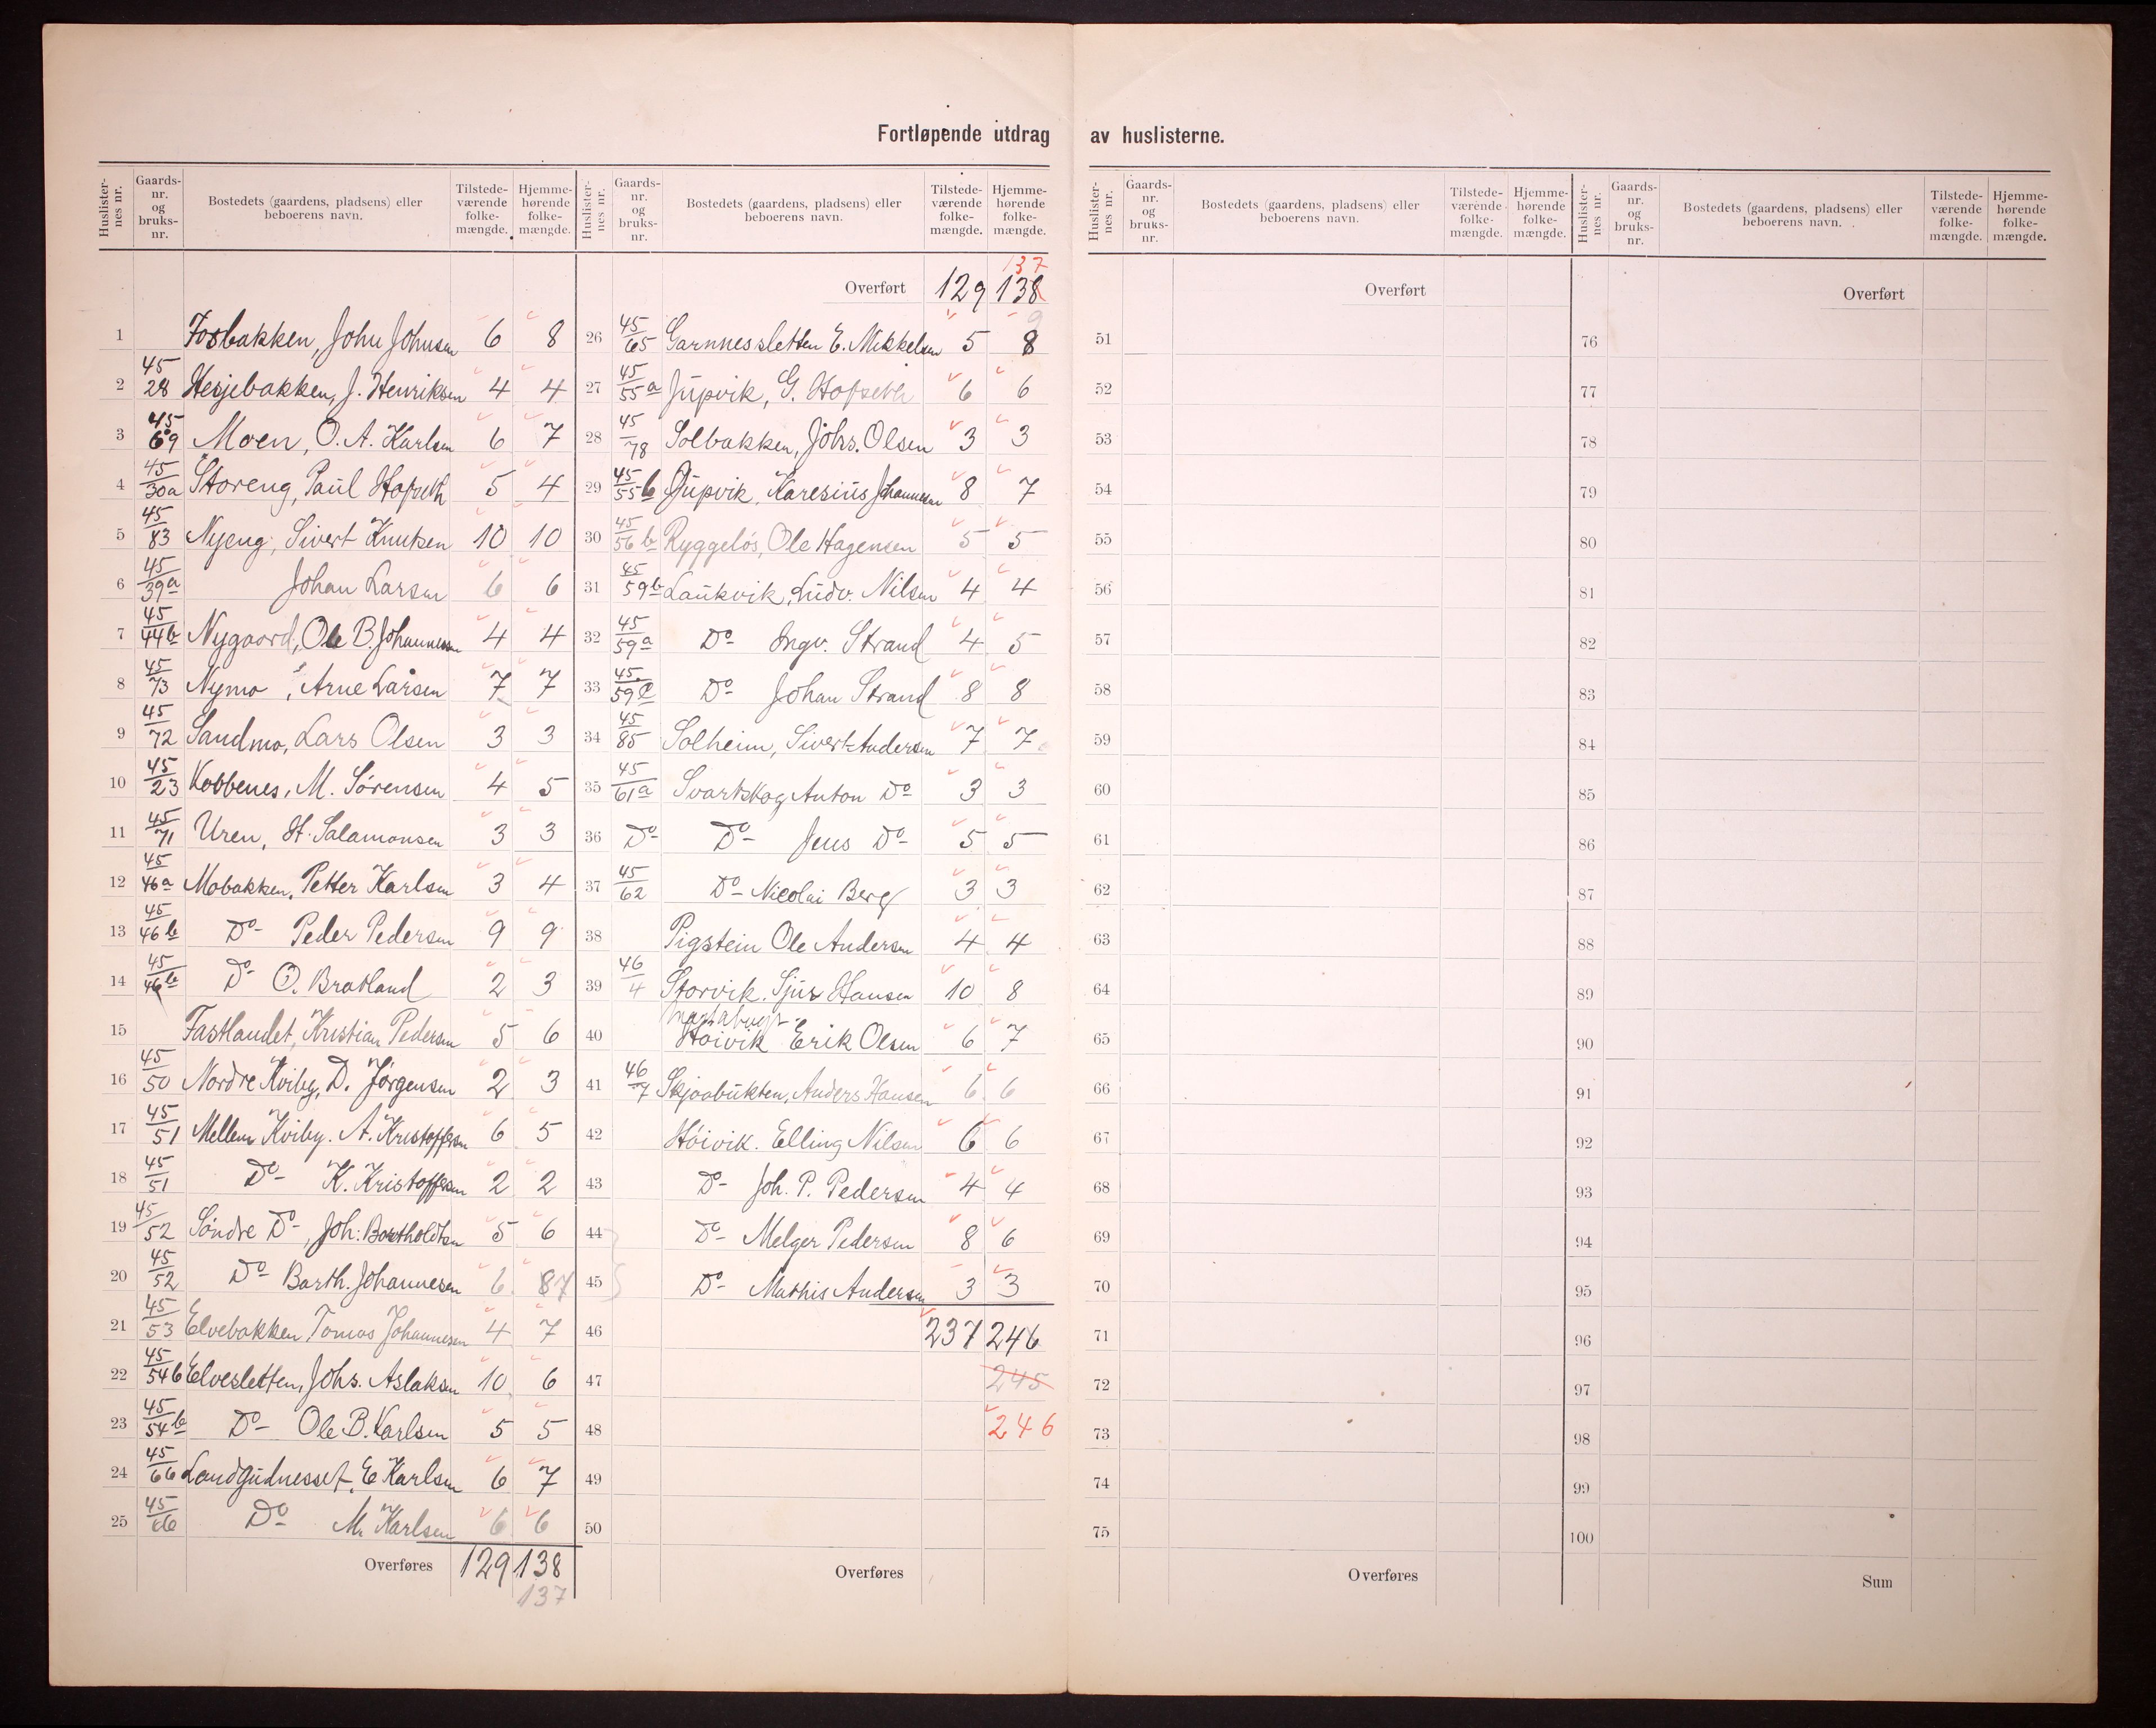 Fortløpende utdrag av huslisterne.
Huslisternes nr. | Gaards-nr. og bruks-nr. | Bostedets (gaardens, pladsens) eller beboerens navn. | Tilstede-værende folke-mængde. | Hjemme-hørende folke-mængde.
1 Fosbakken, John Johnsen 6 8
2 45/28 Hesjebakken, J. Henriksen 4 4
3 45/69 Moen, O. A. Karlsen 6 7
4 45/30a Storeng, Paul Hofseth 5 4
5 45/83 Nyeng, Sivert Knutsen 10 10
6 45/39a Johan Larsen 6 6
7 45/44b Nygaard, Ole B. Johannessen 4 4
8 45/73 Nymo, Arne Larsen 7 7
9 45/72 Sandmo, Lars Olsen 3 3
10 45/23 Kobbenes, M. Sørensen 4 5
11 45/71 Uren, H. Salamonsen 3 3
12 45/46a Mobakken, Petter Karlsen 3 4
13 45/46b Do- Peder Pedersen 9 9
14 45/46b Do- O. Bratland 2 3
15 Fastlandet, Kristian Pedersen 5 6
16 45/50 Nordre Kviby, D. Jørgensen 2 3
17 45/51 Mellem Kviby. A. Kristoffersen 6 5
18 45/51 Do- K. Kristoffersen 2 2
19 45/52 Søndre Do-, Joh: Bartholdtsen 5 6
20 45/52 Do- Barth. Johannesen 6 8 7
21 45/53 Elvebakken, Tomas Johannesen 4 7
22 45/54b Elvesletten, Johs. Aslaksen 10 6
23 45/54b Do- Ole B. Karlsen 5 5
24 45/66 Landgudnesset, E Karlsen 6 7
25 45/66 Do- M. Karlsen 6 6
Overføres 129 138
137
Huslisternes nr. | Gaards-nr. og bruks-nr. | Bostedets (gaardens, pladsens) eller beboerens navn. | Tilstede-værende folke-mængde. | Hjemme-hørende folke-mængde.
137
Overført 129 138
9
26 45/65 Garnnessletten E. Mikkelsen 5 8
27 45/55a Jupvik, G. Hofseth 6 6
28 45/78 Solbakken, Johs. Olsen 3 3
29 45/55b Jupvik, Karesius Johannesen 8 7
30 45/56b Ryggeløs, Ole Hagensen 5 5
31 45/59b Laukvik, Ludv. Nilsen 4 4
32 45/59a Do- Ingv. Strand 4 5
33 45/59c Do- Johan Strand 8 8
34 45/85 Solheim, Sivert Andersen 7 7
35 45/61a Svartskog Anton Do- 3 3
36 Do- Do- Jens Do- 5 5
37 45/62 Do- Nicolai Berg 3 3
38 Pigstein Ole Andersen 4 4
39 46/4 Storvik. Sjur Hansen 10 8
40 Høivik Erik Olsen 6 7
41 46/7 Skjaabukten, Anders Hansen 6 6
42 Høivik. Elling Nilsen 6 6
43 Do- Joh. P. Pedersen 4 4
44 Do- Melger Pedersen 8 6
45 Do- Mathis Andersen 3 3
46 237 246
47 245
48 246
49
50
Overføres
Huslisternes nr. | Gaards-nr. og bruks-nr. | Bostedets (gaardens, pladsens) eller beboerens navn. | Tilstede-værende folke-mængde. | Hjemme-hørende folke-mængde.
Overført
51
52
53
54
55
56
57
58
59
60
61
62
63
64
65
66
67
68
69
70
71
72
73
74
75
Overføres
Huslisternes nr. | Gaards-nr. og bruks-nr. | Bostedets (gaardens, pladsens) eller beboerens navn. | Tilstede-værende folke-mængde. | Hjemme-hørende folke-mængde.
Overført
76
77
78
79
80
81
82
83
84
85
86
87
88
89
90
91
92
93
94
95
96
97
98
99
100
Sum